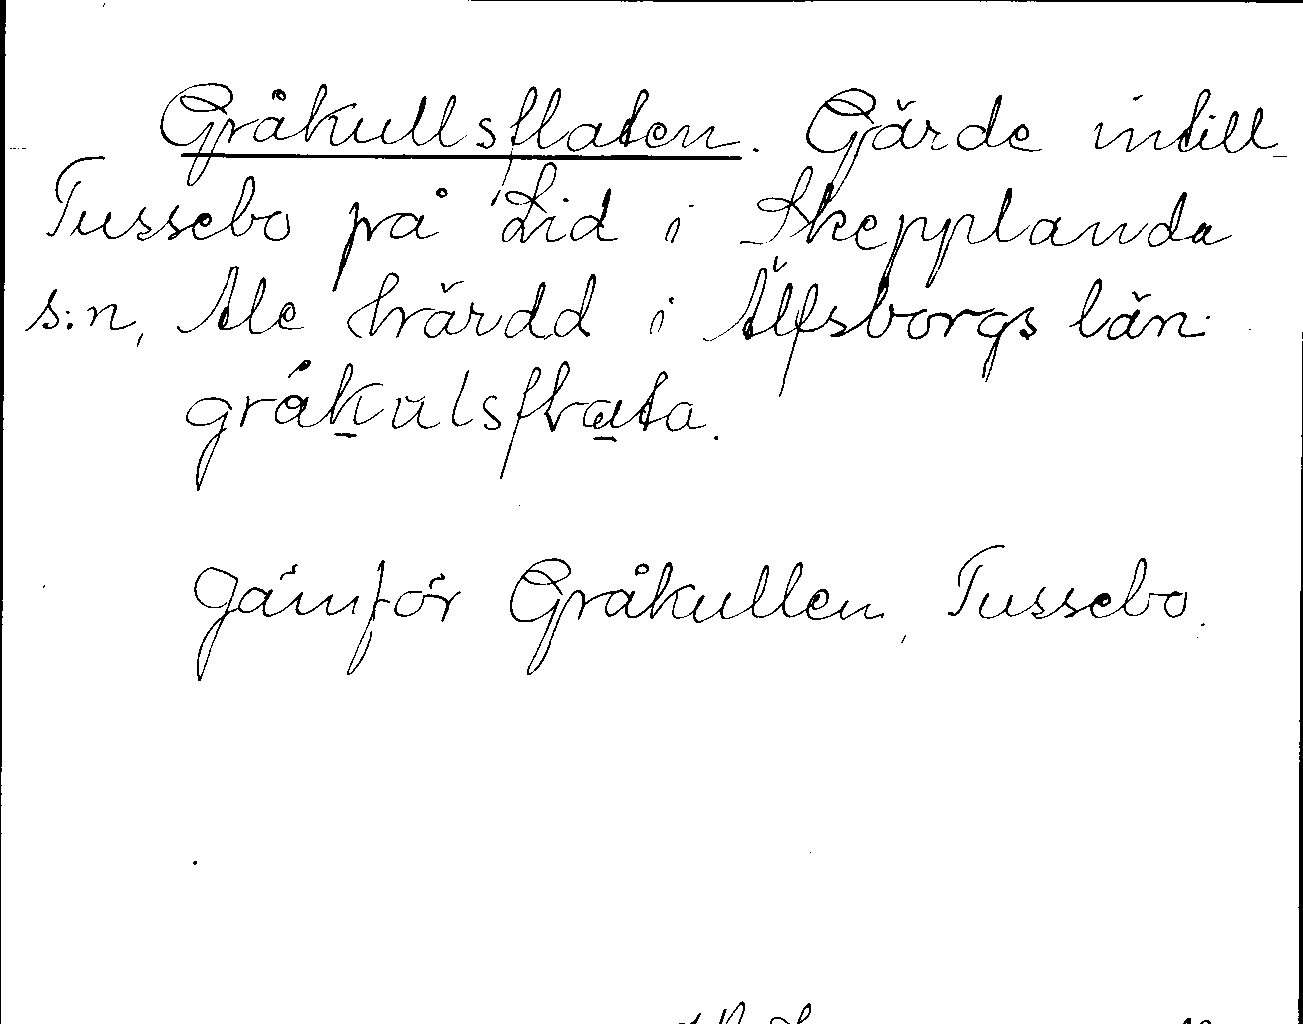 Gråkullsflaten. Gärde intill
Tussebo på Lid i Skepplanda
s:n, Ale härdd i Älfsborgs län.
gråkulsflata.
Jämför Gråkullen, Tussebo.